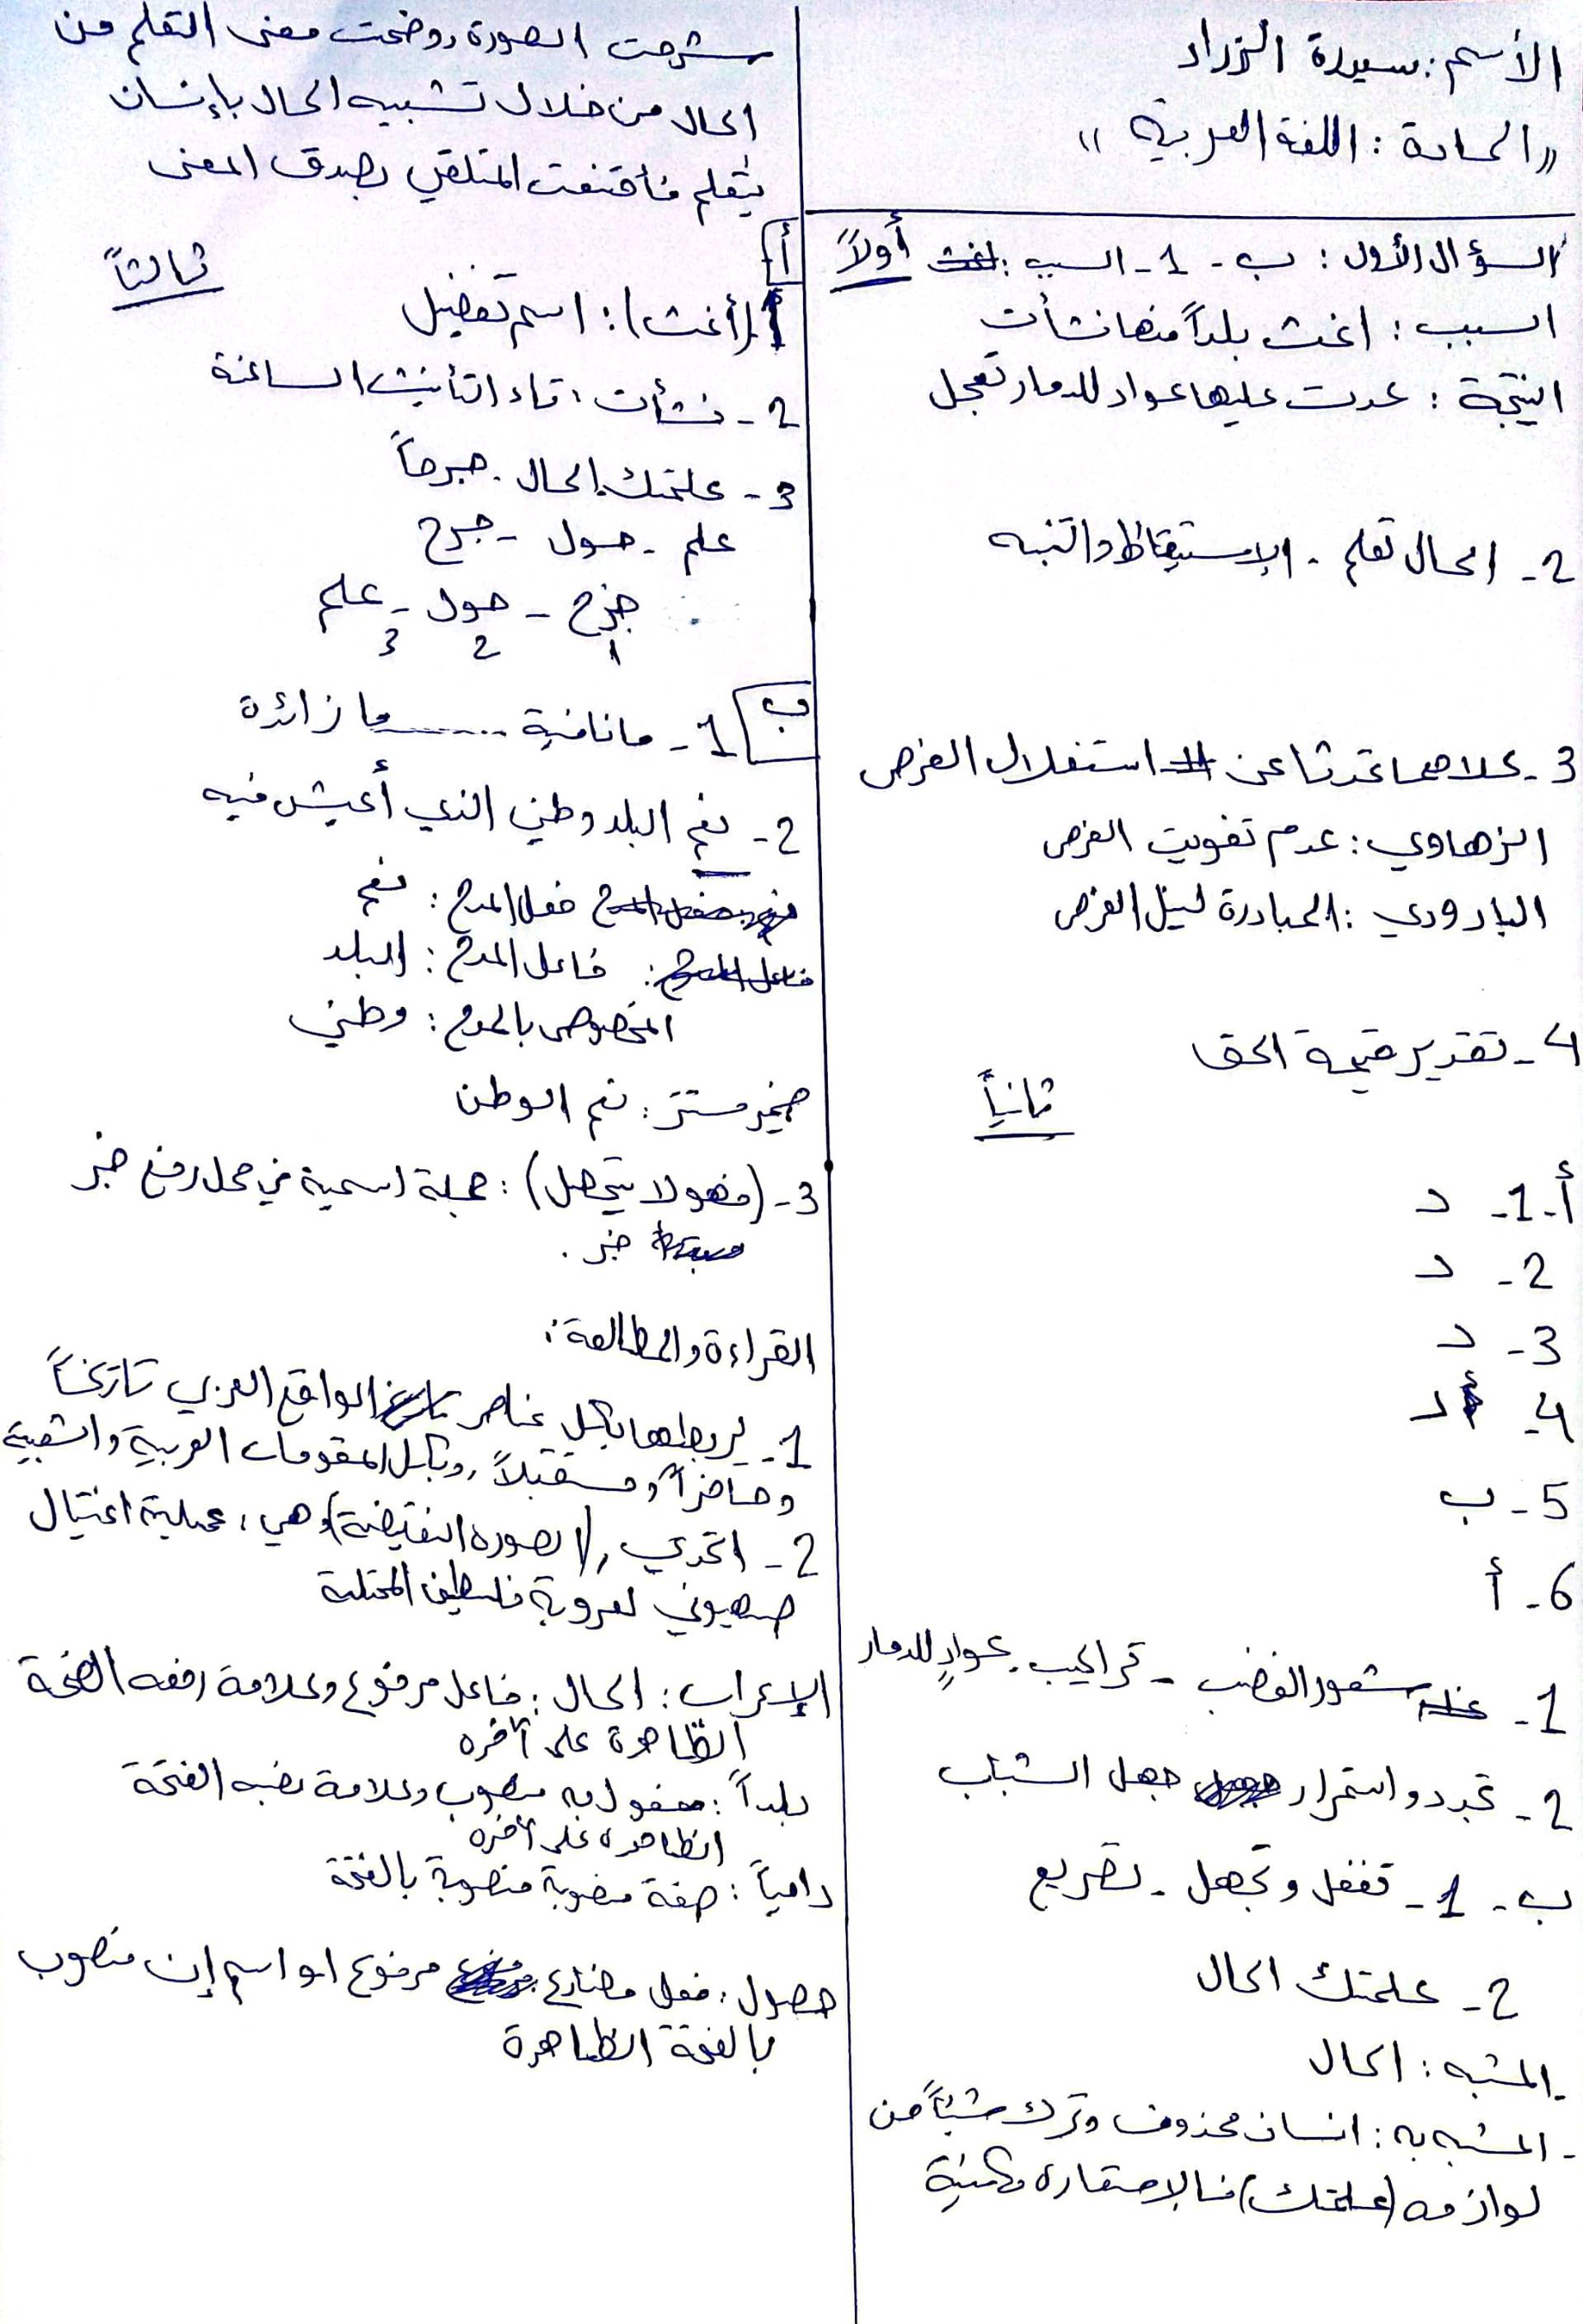 الأسم: سيدرة الزراد
"المادة: اللغة العربية"
السؤال الأول: ب - 1 - السبب: أولاً
السبب: اغث بلداً منها نشأت
النتيجة: عدت عليها عواد للدمار تعجل
2- الحال تعلم - الإستيقاظ والتنبه
3- كلاهما تحدثا عن استغلال الفرص
الزهاوي: عدم تفويت الفرص
البارودي: المبادرة لنيل الفرص
4- تقدير قيمة الحق
ثانياً
أ-1- د
2- د
3- د
4- د
5- ب
6- أ
1- شعور الغضب - تراكيب، عوادٍ للدمار
2- تجدد و استمرار جهل الشباب
ب- 1- تغفل و تجهل - تصريع
2- علمتك الحال
- المشبه: الحال
- المشبه به: انسان محذوف وترك شيئاً من
لوازمه (علمتك) فالإستعارة مكنية
شرحت الصورة ووضحت معنى التعلم من
الحال من خلال تشبيه الحال بإنسان
يتعلم فأقنعت المتلقي بصدق المعنى
ثالثاً
أ
1. (أغث): اسم تفضيل
2- نشأت، تاء التأنيث الساكنة
3- علمتك، الحال. جرحاً
علم - حول - جرح
جرح - حول - علم
1 2 3
ب 1- ما نافية ...... ما زائدة
2- نعم البلد وطني الذي أعيش فيه
فعل المدح: نعم
فاعل المدح: البلد
المخصوص بالمدح: وطني
ضمير مستتر: نعم الوطن
3- (فهو لا يتمهل): جملة اسمية في محل رفع خبر
خبر.
القراءة والمطالعة:
1- لربطها بكل عناصر الواقع العربي تاريخاً
وحاضراً ومستقبلاً، وبكل المقومات العربية والشعبية
2- التحدي، (الصورة النقيضة) وهي، عملية اغتيال
صهيوني لعروبة فلسطين المحتلة
الإعراب: الحال: فاعل مرفوع وعلامة رفعه الضمة
الظاهرة على آخره
بلداً: مفعول به منصوب وعلامة نصبه الفتحة
الظاهرة على آخره
دامياً: صفة منصوبة منصوبة بالفتحة
حصول: فعل مضارع مرفوع او اسم إن منصوب
بالفتحة الظاهرة